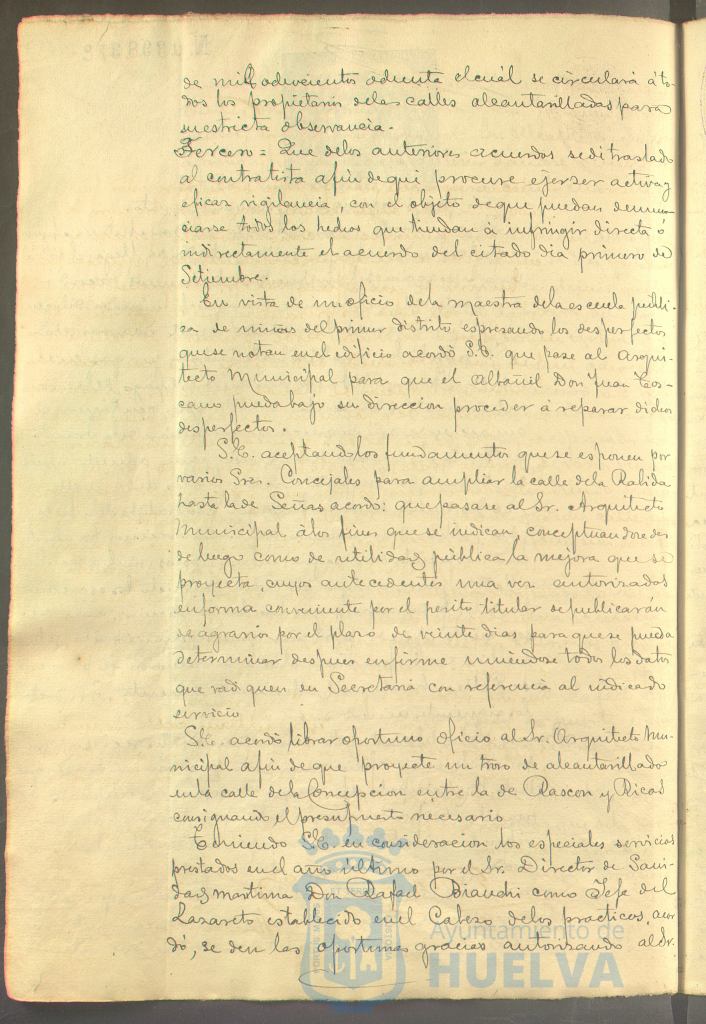 de mil ochocientos ochenta el cuál se circulará á to-
dos los propietarios de las calles alcantarilladas para
su estricta observancia.
Tercero = Que de los anteriores acuerdos se dé traslado
al contratista afin de que procure ejerser activa y
eficas vigilancia, con el objeto de que puedan denun-
ciarse todos los hechos que tiendan á infringir directa ó
indirectamente el acuerdo del citado dia primero de
Setiembre.
En vista de un oficio de la maestra de la escuela públi-
ca de niñas del primer distrito espresando los desperfectos
que se notan en el edificio acordó S.E. que pase al Arqui-
tecto Municipal para que el Albañil Don Juan Tos-
cano pueda bajo su direccion proceder á reparar dichos
desperfectos.
S.E. aceptando los fundamentos que se esponen por
varios Sres. Concejales para ampliar la calle de la Rabida
hasta la de Señas acordó: que pasase al Sr. Arquitecto
Municipal á los fines que se indican, conceptuandose des
de luego como de utilidad pública la mejora que se
proyecta, cuyos antecedentes una vez autorizados
en forma conveniente por el perito titular se publicarán
de agravios por el plazo de veinte dias para que se pueda
determinar despues en firme uniendose todos los datos
que radiquen en Secretaria con referencia al indicado
servicio
S.E. acordó librar oportuno oficio al Sr. Arquitecto Mu-
nicipal afin de que proyecte un trozo de alcantarillado
en la calle de la Concepcion entre la de Rascon y Ricos
consignando el presupuesto necesario
Teniendo S.E. en consideracion los especiales servicios
prestados en el año último por el Sr. Director de Sani-
dad maritima Don Rafael Bianchi como Jefe del
Lazareto establecido en el Cabezo de los practicos, acor
dó, se den las oportunas gracias autorizando al Sr.
Ayuntamiento de
HUELVA